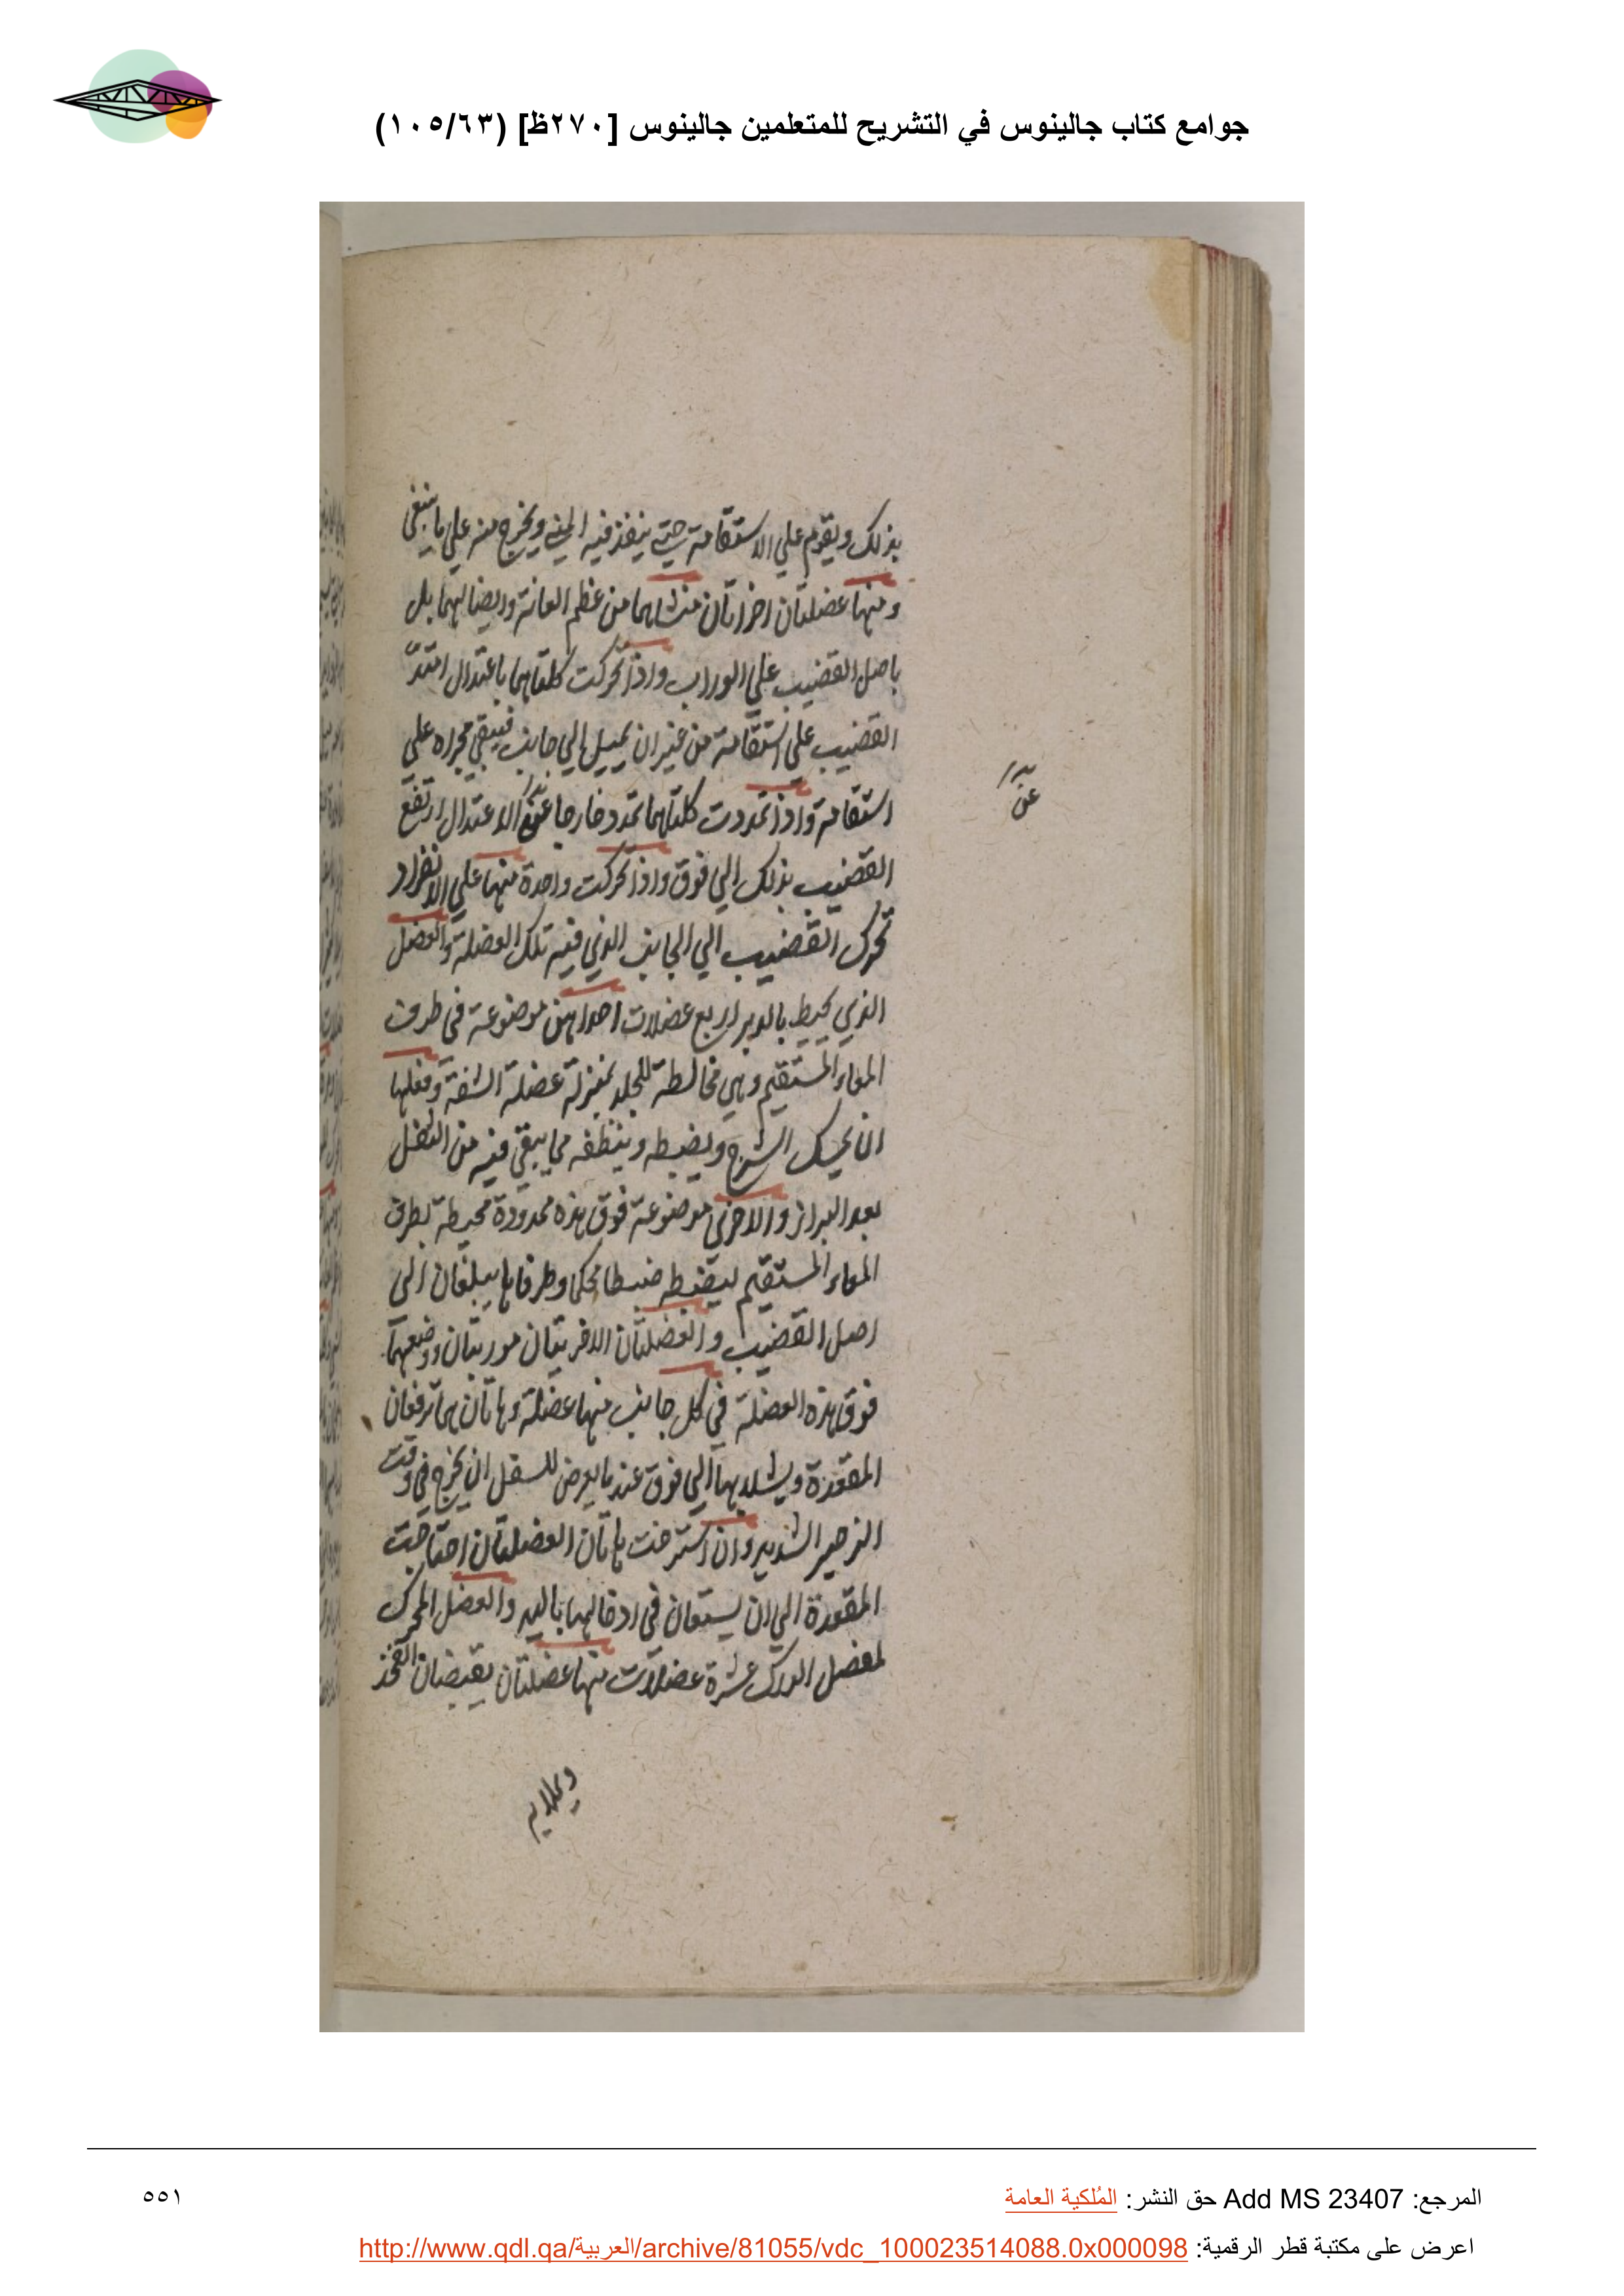 جوامع كتاب جالينوس في التشريح للمتعلمين جالينوس [٢٧٠ظ] (١٠٥/٦٣)
بذلك ويقوم علي الاستقامة حتي ينفذ فيه المني ويخرج منه علي ما ينبغي
ومنها عضلتان اخراتان منشاهما من عظم العانة واتصالهما
باصل القضيب علي الوراب واذا تحركت كلتاهما باعتدال امتدّ
القضيب علي استقامة من غير ان يميل الي جانب فيبقي مجراه علي
استقامة واذا تمددت كلتاهما تمدد خارجا عن الاعتدال ارتفع
عن
القضيب بذلك الي فوق واذا تحركت واحدة منهما علي الانفراد
تحرك القضيب الي الجانب الذي فيه تلك العضلة والعضل
الذي يحيط بالدبر اربع عضلات احداهن موضوعة في طرف
المعاء المستقيم وهي مخالطة للجلد بمنزلة عضلة الشفة وفعلها
ان يمسك الشرج ويضبطه وينظفه مما يبقي فيه من الثفل
بعد البراز والاخري موضوعة فوق هذه ممدودة محيطة بطرف
المعاء المستقيم ليضبطه ضبطا محكما وطرفاها يبلغان الي
اصل القضيب والعضلتان الاخريتان موربتان ووضعهما
فوق هذه العضلة في كل جانب منها عضلة وهاتان هما ترفعان
المقعدة ويشيلانها الي فوق عندما يعرض للسفل ان يخرج في وقت
الزحير الشديد وان استرخت هاتان العضلتان احتاجت
المقعدة الي ان يستعان في ادخالها باليد والعضل المحرك
لمفصل الورك عشرة عضلات منها عضلتان يقبضان الفخذ
المرجع: Add MS 23407 حق النشر: المُلكية العامة
٥٥١
اعرض على مكتبة قطر الرقمية: http://www.qdl.qa/العربية/archive/81055/vdc_100023514088.0x000098